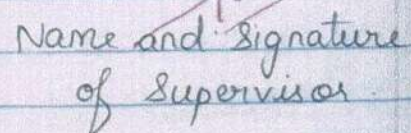 Name and Signature
of Supervisor.